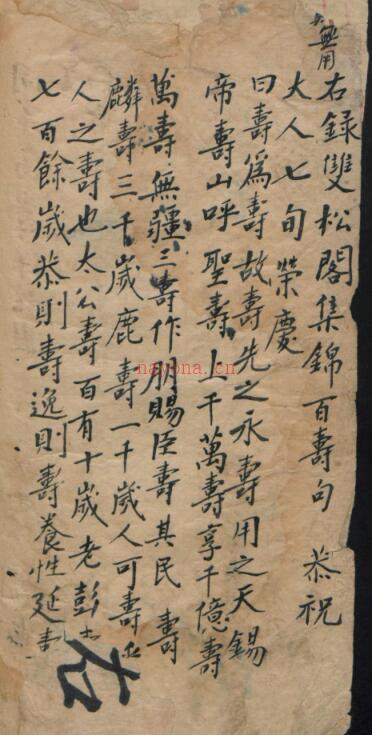 無用
右錄雙松閣集錦百壽句 恭祝
大人七旬榮慶
曰壽為壽故壽先之永壽用之天錫
帝壽山呼聖壽上千萬壽享千億壽
萬壽無疆三壽作朋賜臣壽其民 壽
麟壽三千歲鹿壽一千歲人可壽
人之壽也太公壽百有十歲老彭
七百餘歲恭則壽逸則壽養性延壽
右
nayona.cn